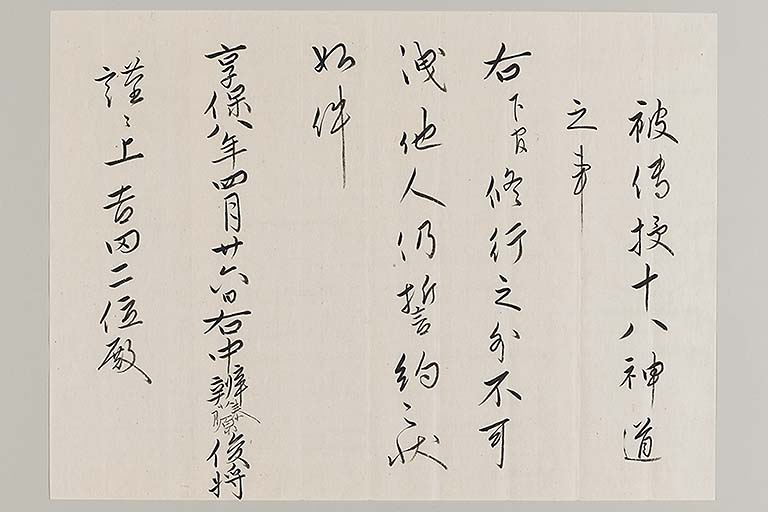 被傳授十八神道
之事
右下官修行之外不可
洩他人仍誓約之状
如件
享保八年四月廿六日右中辨藤原俊将
謹々上吉田二位殿